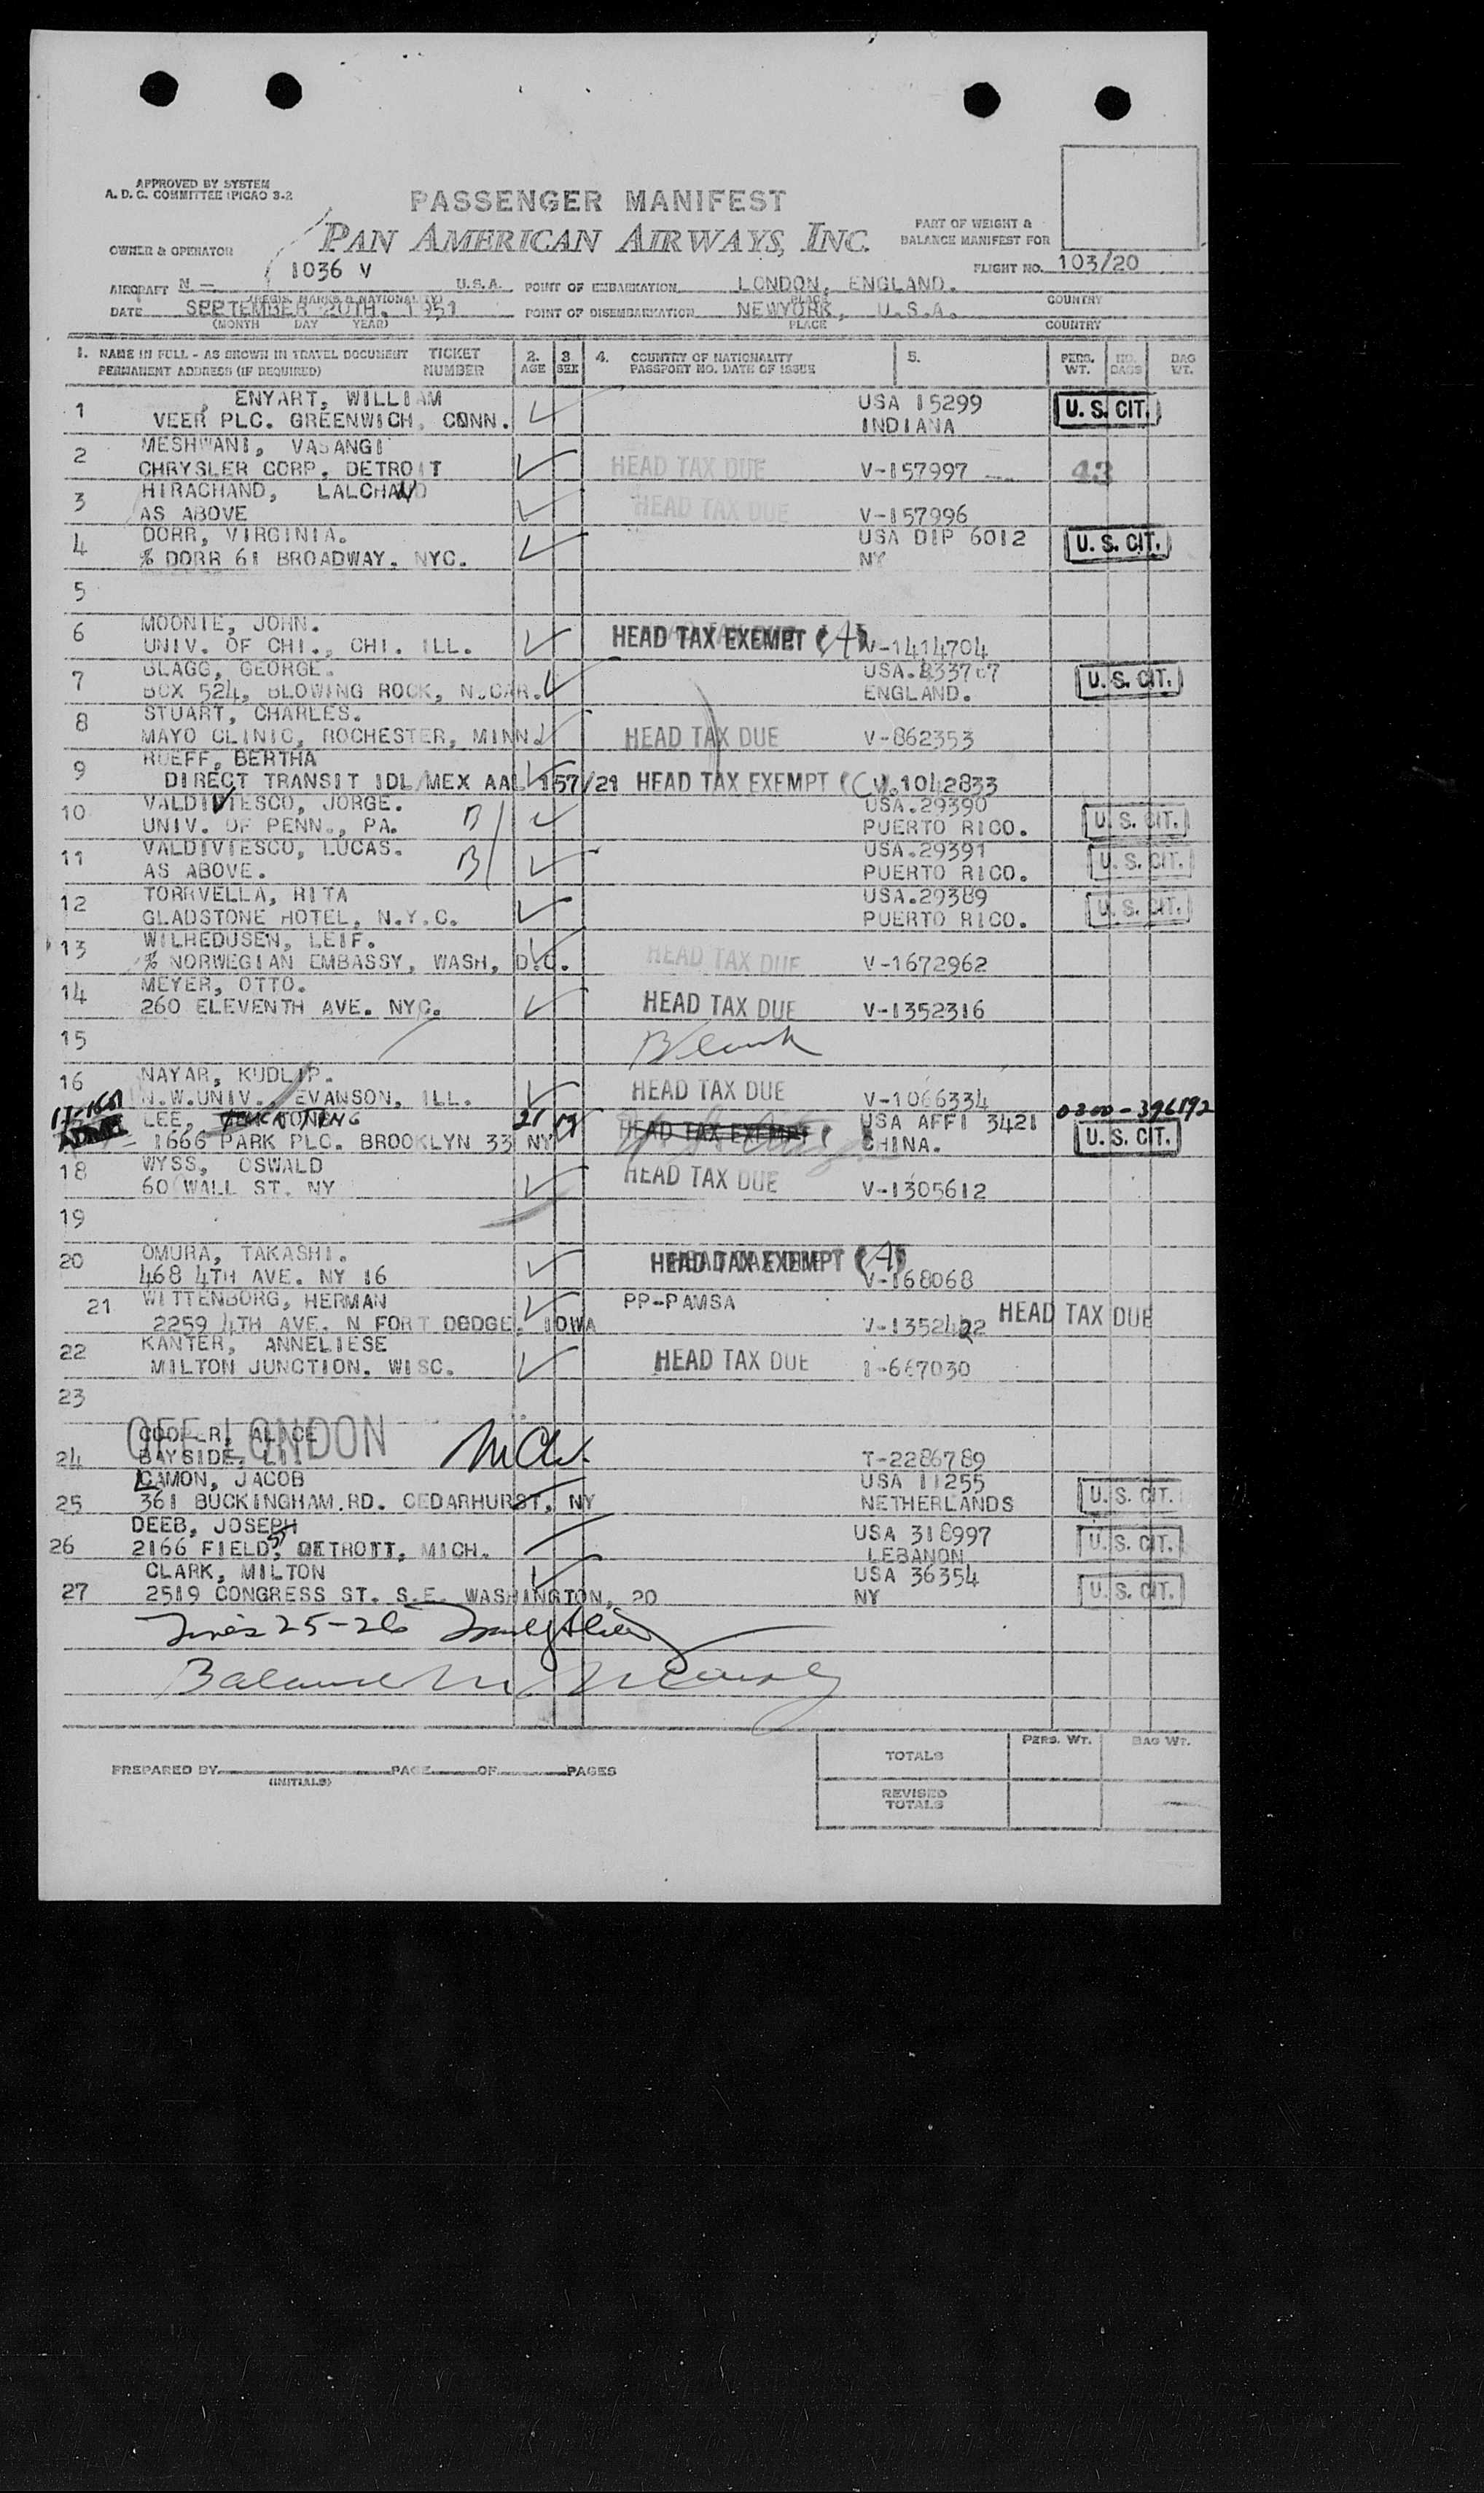 APPROVED BY SYSTEM
A. D. C. COMMITTEE (PICAO 3-2
PASSENGER MANIFEST
PAN AMERICAN AIRWAYS, INC.
PART OF WEIGHT &
BALANCE MANIFEST FOR
OWNER & OPERATOR
1036 V
FLIGHT NO. 103/20
AIRCRAFT N — U.S.A. POINT OF EMBARKATION LONDON, ENGLAND.
(REGIS. MARKS & NATIONALITY) PLACE COUNTRY
DATE SEPTEMBER 20TH. 1951 POINT OF DISEMBARKATION NEWYORK, U.S.A.
(MONTH DAY YEAR) PLACE COUNTRY
1. NAME IN FULL - AS SHOWN IN TRAVEL DOCUMENT TICKET 2. 3 4. COUNTRY OF NATIONALITY 5. PERS. NO. BAG
PERMANENT ADDRESS (IF REQUIRED) NUMBER AGE SEX PASSPORT NO. DATE OF ISSUE WT. BAGS WT.
1 , ENYART, WILLIAM USA 15299 U. S. CIT.
VEER PLC. GREENWICH, CONN. INDIANA
2 MESHWANI, VASANGI
CHRYSLER CORP. DETROIT HEAD TAX DUE V-157997 43
3 HIRACHAND, LALCHAND
AS ABOVE HEAD TAX DUE V-157996
4 DORR, VIRGINIA. USA DIP 6012 U. S. CIT.
% DORR 61 BROADWAY. NYC. NY
5
6 MOONIE, JOHN.
UNIV. OF CHI., CHI. ILL. HEAD TAX EXEMPT (A) V-1414704
7 BLAGG, GEORGE. USA. 433707 U. S. CIT.
BOX 524, BLOWING ROCK, N.CAR. ENGLAND.
8 STUART, CHARLES.
MAYO CLINIC, ROCHESTER, MINN. HEAD TAX DUE V-862353
9 RUEFF, BERTHA
DIRECT TRANSIT IDL/MEX AAL 157/21 HEAD TAX EXEMPT (C V.1042833
10 VALDIVIESCO, JORGE. B USA.29390 U. S. CIT.
UNIV. OF PENN., PA. PUERTO RICO.
11 VALDIVIESCO, LUCAS. B USA.29391 U. S. CIT.
AS ABOVE. PUERTO RICO.
12 TORRVELLA, RITA USA.29389 U. S. CIT.
GLADSTONE HOTEL, N.Y.C. PUERTO RICO.
13 WILHEDUSEN, LEIF.
% NORWEGIAN EMBASSY, WASH, D.C. HEAD TAX DUE V-1672962
14 MEYER, OTTO.
260 ELEVENTH AVE. NYC. HEAD TAX DUE V-1352316
15 Blank
16 NAYAR, KUDLIP.
N.W.UNIV., EVANSON, ILL. HEAD TAX DUE V-1066334
LEE, 21 M USA AFFI 3421 0300-396192
1666 PARK PLC. BROOKLYN 33 NY HEAD TAX EXEMPT CHINA. U. S. CIT.
18 WYSS, OSWALD
60 WALL ST. NY HEAD TAX DUE V-1305612
19
20 OMURA, TAKASHI.
468 4TH AVE. NY 16 HEAD TAX EXEMPT (A) V-168068
21 WITTENBORG, HERMAN PP-PAMSA
2259 4TH AVE. N FORT DODGE, IOWA V-1352422 HEAD TAX DUE
22 KANTER, ANNELIESE
MILTON JUNCTION. WISC. HEAD TAX DUE I-667030
23
OFF LONDON
24 COOPER, ALICE
BAYSIDE, LI T-2286789
25 CAMON, JACOB USA 11255 U. S. CIT.
361 BUCKINGHAM.RD. CEDARHURST, NY NETHERLANDS
26 DEEB, JOSEPH USA 318997 U. S. CIT.
2166 FIELD, DETROIT, MICH. LEBANON
27 CLARK, MILTON USA 36354 U. S. CIT.
2519 CONGRESS ST. S.E. WASHINGTON, 20 NY
Lines 25-26
Balance
PREPARED BY PAGE OF PAGES
(INITIALS)
TOTALS PERS. WT. BAG WT.
REVISED
TOTALS